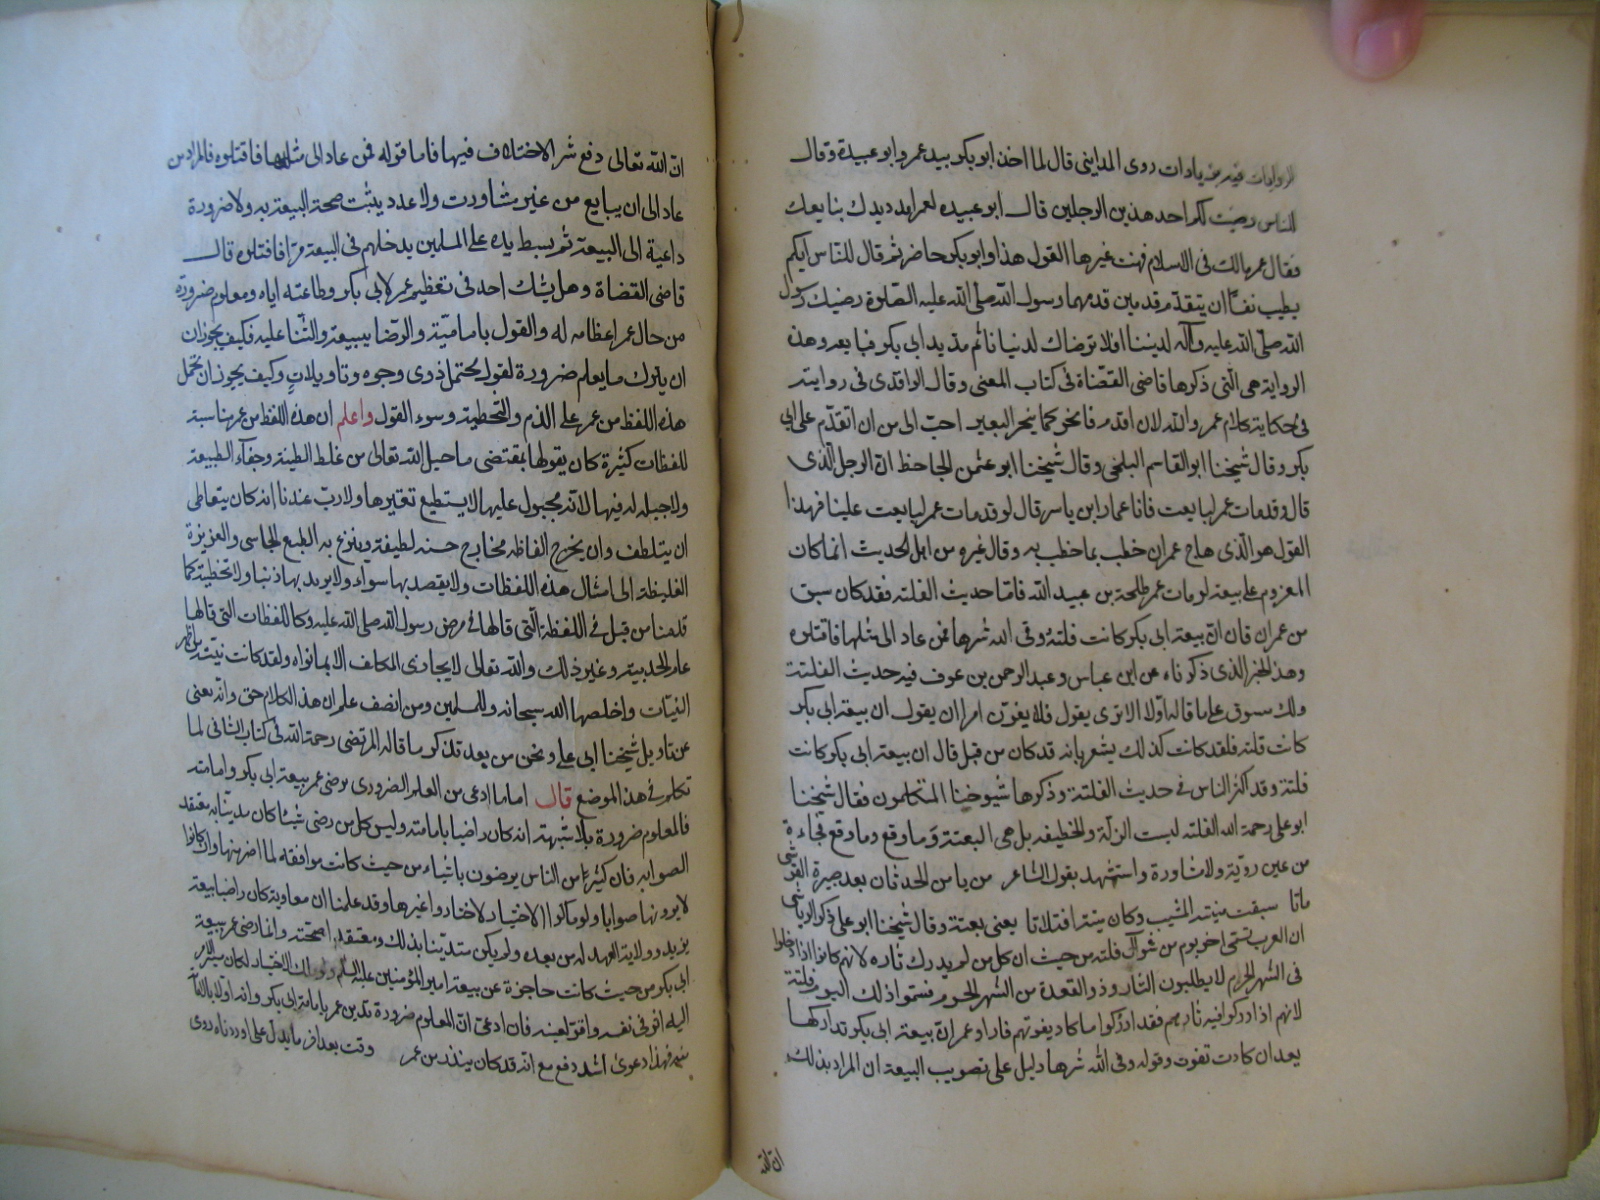 الروايات فيه زيادات روى المدايني قال لما اخذ ابو بكر بيد عمر وابو عبيدة وقال
للناس رضيت لكم احد هذين الرجلين قال ابو عبيده لعمر امدد يدك نبايعك
فقال عمر مالك فى الاسلام فهة غيرها القول هذا وابو بكر حاضر ثم قال للناس ايكم
يطيب نفسًا ان يتقدّم قدمين قدمهما رسول الله صلى الله عليه الصّلوة رضيك رسول
الله صلّى الله عليه وآله لديننا افلا نرضاك لدنيانا ثم مد يد ابى بكر فبايعه وهذه
الرواية هى الّتى ذكرها قاضى القضاة فى كتاب المغنى وقال الواقدى فى روايته
فى حكاية كلام عمر والله لان اقدم فانحر كما ينحر البعير احبّ الى من ان اتقدّم على ابى
بكر وقال شيخنا ابو القاسم البلخى وقال شيخنا ابو عثمن الجاحظ انّ الرجل الّذى
قال لو قد مات عمر لبايعت فلانا عمار ابن ياسر قال لو قد مات عمر لبايعت عليا فهذا
القول هو الّذى هاج عمر ان خطب بما خطب به وقال غيره من اهل الحديث انما كان
المعزوم على بيعته لو مات عمر طلحة بن عبيد الله فامّا حديث الفلته فقد كان سبق
من عمر ان قال انّ بيعة ابى بكر كانت فلتة وقى الله شرها فمن عاد الى مثلها فاقتلوه
وهذا الخبر الذى ذكرناه عن ابن عباس وعبد الرحمن بن عوف فيه حديث الفلتة
ولكنه مسوق على ما قاله اوّلا الا ترى يقول فلا يغرّن امرا ان يقول ان بيعة ابى بكر
كانت فلته فلقد كانت كذلك يشعر بانه قد كان من قبل قال ان بيعة ابى بكر كانت
فلتة وقد اكثر الناس فى حديث الفلتة وذكرها شيوخنا المتكلمون فقال شيخنا
ابو على رحمة الله الفلته ليست الزلة والخطيئة بل هى البغتة وَما وقع وما وقع فجاءة
من غير رويّة ولا مشاورة واستشهد بقول الشاعر من يامن الحدثان بعد صبيرة القرشى
ماتا سبقت منيته المشيب وكان ميتته افتلاتا يعنى بغتة وقال شيخنا ابو على ذكر الرياشى
ان العرب تسمّى اخر يوم من شوال فلتة من حيث ان كل من لم يدرك ثاره لانهم كانوا اذا دخلوا
فى الشهر الحرم لا يطلبون الثار وذو القعدة من الشهر الحرم فسموا ذلك اليوم فلتة
لانهم اذا ادركوا فيه ثارهم فقد ادركوا ما كاد يفوتهم فاراد عمر انّ بيعة ابى بكر تداركها
بعد ان كادت تفوت وقوله وقى الله شرها دليل على تصويب البيعة ان المراد بذلك
ان الله
انّ الله تعالى دفع شر الاختلاف فيها فاما قوله فمن عاد الى مثلها فاقتلوه فالمراد من
عاد الى ان يبايع من غير مشاورت ولا عدد يثبت صحة البيعة به ولا ضرورة
داعية الى البيعة ثم بسط يده على المسلمين يدخلهم فى البيعة فاقتلوه قال
قاضى القضاة وهل يشك احد فى تعظيم عمر لابى بكر وطاعته اياه ومعلوم ضرورة
من حال عمر اعظامه له والقول بامامته والرّضا ببيعته والثّنا عليه فكيف يجوز ان
ان يترك ما يعلم ضرورة لقول محتمل ذوى وجوه وتاويلاتٍ وكيف يجوز ان تحمل
هذه اللفظ من عمر على الذم والتخطية وسوء القول واعلم ان هذه اللفظ من عمر مناسبة
للفظات كثيرة كان يقولها بمقتضى ما جبل الله تعالى من غلظ الطينة وجفآء الطبيعة
ولا حيله له فيها لانّه مجبول عليها لا يستطيع تغييرها ولا ريب عندنا انه كان يتعاطى
ان يتلطف وان يخرج الفاظه مخارج حسنه لطيفة وينزع به الطبع الجاسى والغريزة
الغليظة الى امثال هذه اللفظات ولا يقصد بها سواء ولا يريد بها ذنبا ولا تخطية كما
قدمنا من قبل فى اللفظة الّتى قالها فى مرض رسول الله صلى الله عليه وكاللفظات التى قالها
عام الحديبية وغير ذلك والله تعالى لا يجازى المكلف الا بما نواه ولقد كانت نيته من اظهر
النيّات واخلصها الله سبحانه وللمسلمين ومن انصف علم ان هذا الكلام حق وانه يغنى
عن تاويل شيخنا ابى على ونحن من بعد نذكر ما قاله المرتضى رحمة الله فى كتاب الشافى لما
تكلم فى هذا الموضع قال اما ما ادعى من العلم الضرورى برضى عمر ببيعة ابى بكر وامامته
فالمعلوم ضرورة بلا شبهة انه كان راضيا بامامته وليس كل من رضى شيئا كان متدينا به معتقد
الصوابه فان كثيرًا من الناس يرضون باشياء من حيث كانت موافقه لما اضر منها وان كانوا
لا يرونها صوابا ولو ملكوا الاختيار لاختاروا غيرها وقد علمنا ان معاوية كان راضيا ببيعة
يزيد وولاية العهد له من بعده ولم يكن متدينا بذلك ومعتقد اصحّته وانما رضى عمر ببيعة
ابى بكر من حيث كانت حاجزة عن بيعة امير المؤمنين عليه السلم ولو ملك الاختيار لكان مصير الامر
اليه اقوى فى نفسه واقر لعينه فان ادعى انّ المعلوم ضرورة تدين عمر بامامة ابى بكر وانه اولا بالامامة
منه فهذا دعوى اشد دفع مع انّه قد كان يبدر من عمر وقت بعد اخر ما يدلّ على اوردناه روى